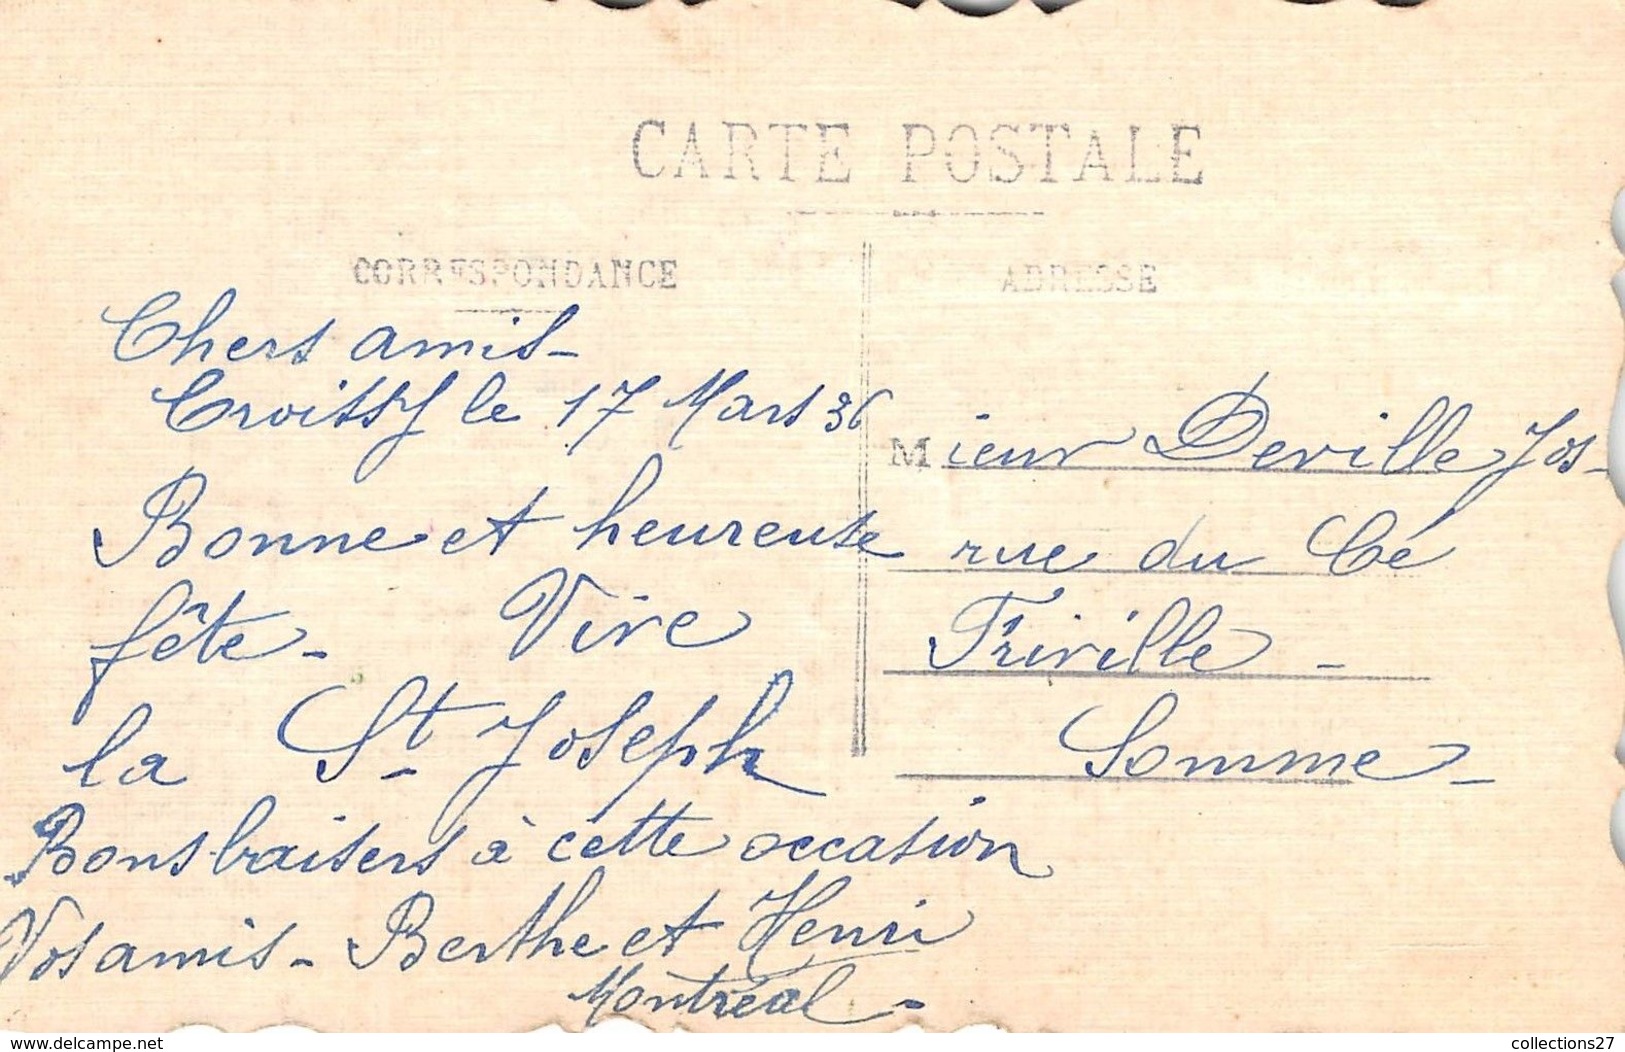 CARTE POSTALE
CORRESPONDANCE
Chers amis-
Croissy le 17 Mars 36
Bonne et heureuse
fête- Vive
la St Joseph
Bons baisers à cette occasion
Vos amis- Berthe et Henri
Montréal-
ADRESSE
Mieur Deville Jos-
rue du Cé
Friville-
Somme-
delcampe.net
collections27